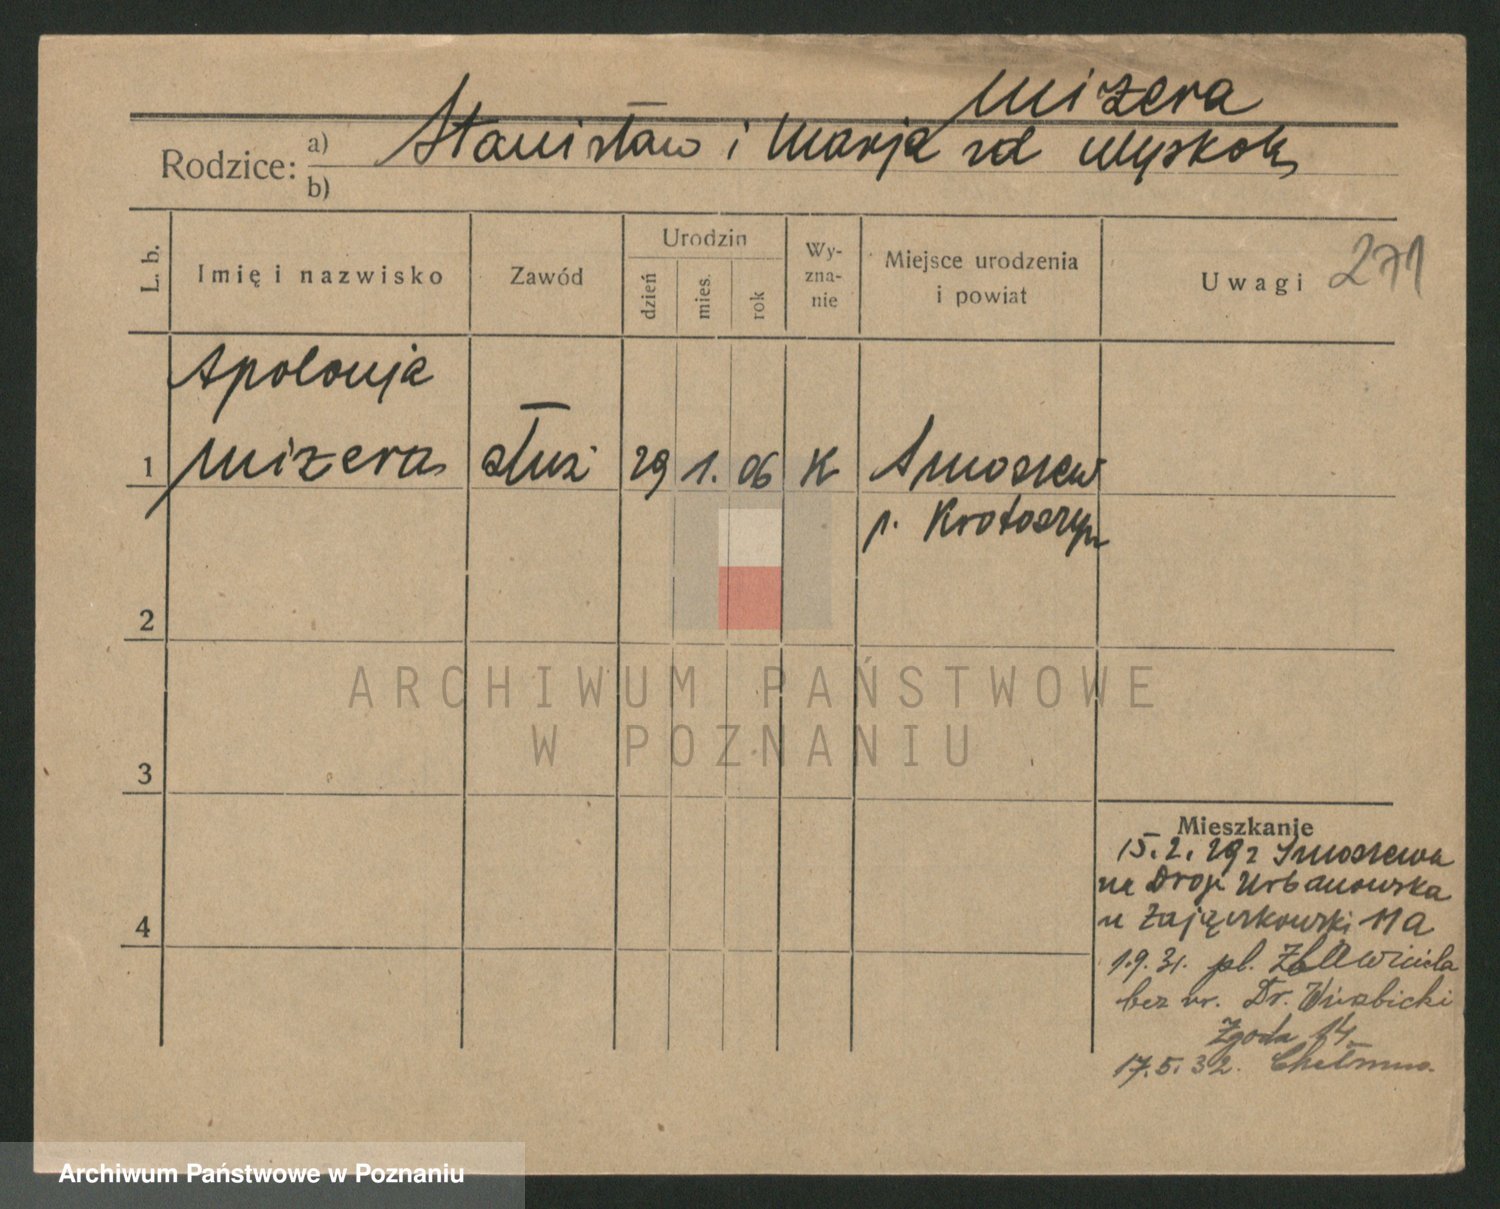 Mizera
Rodzice: a) Stanisław i Marja zd
b)
L. b.
Imię i nazwisko
Zawód
Urodzin
dzień
mies.
rok
Wy-
zna-
nie
Miejsce urodzenia
i powiat
Uwagi
271
Apolonja
1 Mizera służ 29 1. 06 K Smoszew
p. Krotoszyn
2
ARCHIWUM PAŃSTWOWE
W POZNANIU
3
Mieszkanie
15.2.29 z Smoszewa
na Urbanowska
u Zajączkowski 11a
4
1.9.31. pl. Zbawiciela
bez nr. Dr. Wierzbicki
Zgoda 14.
17.5.32. Chełmno.
Archiwum Państwowe w Poznaniu